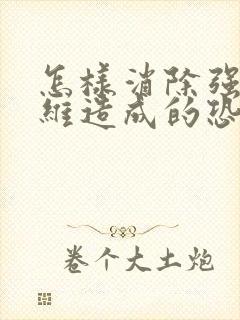 怎樣消除强
維造成的恐
卷个大土炮